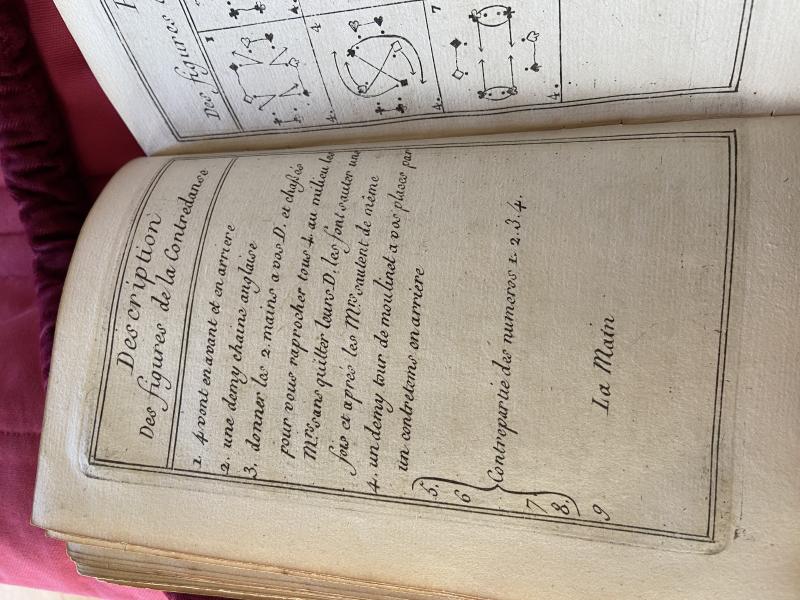 Description
Des figures de la Contredanse
1. 4 vont en avant et en arriere
2. une demy chaine anglaise
3. donner les 2. mains a vos D. et chassés
pour vous raprocher tous 4. au milieu les
Mrs. sans quitter leurs D. les font sauter une
fois et aprés les Mrs. sautent de même
4. un demy tour de moulinet a vos places par
un contretems en arriere
5.
6
Contrepartie des numeros 1. 2. 3. 4.
7
8.
9 La Main
Des figures
1
4.
4
4.
7
4.